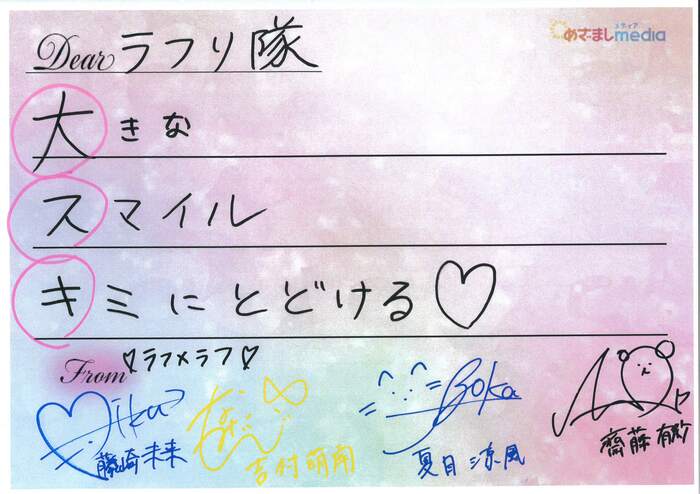 めざましmedia
メディア
Dear ラフリ隊
大きな
スマイル
キミにとどける♡
From ♡ラフ×ラフ♡
藤崎未来
吉村萌南
夏目涼風
齋藤有紗